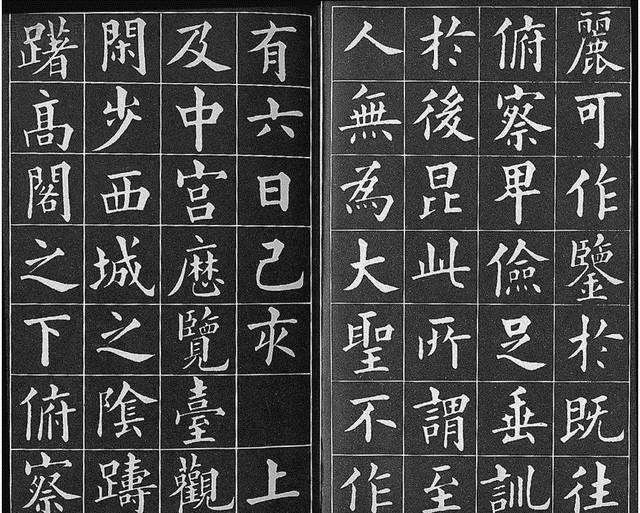 麗可作鑒於既往
俯察卑儉足垂訓
於後昆此所謂至
人無為大聖不作
有六日己亥　上
及中宮歷覽臺觀
閑步西城之陰躊
躇高閣之下俯察